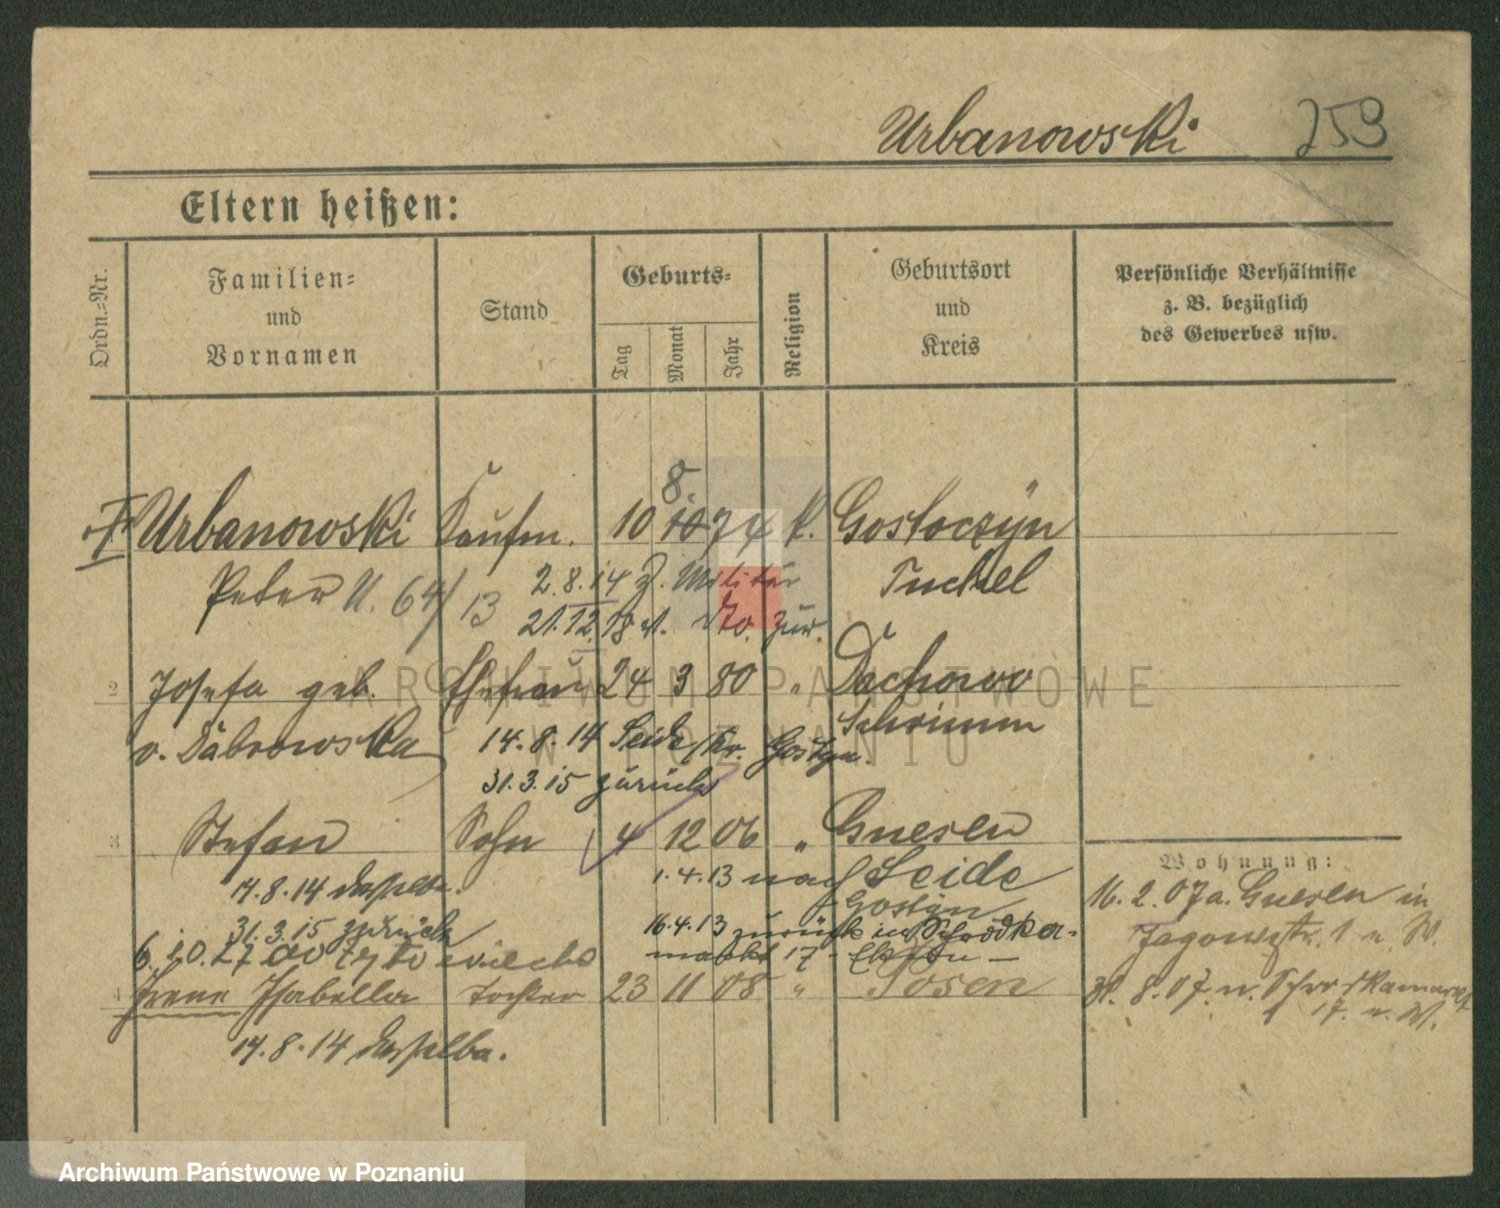 Urbanowski 259
Eltern heißen:
Ordn.-Nr.
Familien-
und
Vornamen
Stand
Geburts-
Tag
Monat
Jahr
Religion
Geburtsort
und
Kreis
Persönliche Verhältnisse
z. B. bezüglich
des Gewerbes usw.
8.
Urbanowski Kaufm. 10 10 74 k. Gostoczyn
Peter U. 64/13 Tuchel
2.8.14 z. Militär
21.12.18 v. zur.
2 Josefa geb. Ehefrau 24 3 80 " Dachowo
v. Dąbrowska Schrimm
14.8.14 Seide Kr. Gostyn.
31.3.15 zurück
3 Stefan Sohn 4 12 06 " Gnesen
14.8.14 dasselbe. 1.4.13 nach Seide
Gostyn
31.3.15 zurück 16.4.13 zurück in Schrodka-
markt 17 Eltern
6.10.27
4 Irene Isabella Tochter 23 11 08 " Posen
14.8.14 dasselbe.
Wohnung:
16.2.07 a. Gnesen in
1 n. W.
31.8.07. n. Schrodkamarkt
17. n. W.
ARCHIWUM PAŃSTWOWE
W POZNANIU
Archiwum Państwowe w Poznaniu